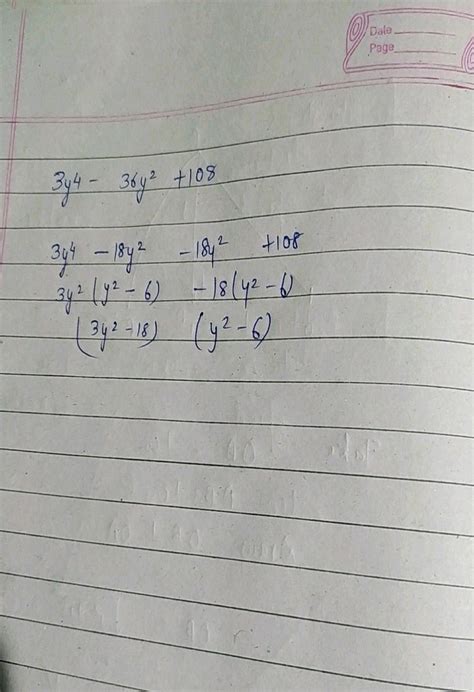 Date
Page
3y4 - 36y² +108
3y⁴ - 18y² - 18y² +108
3y² (y² - 6) - 18 (y² - 6)
(3y² - 18) (y² - 6)